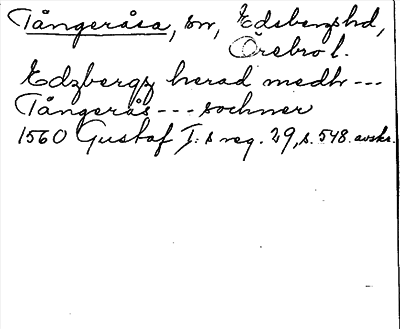 Tångeråsa, sn, Edsbergshd,
Örebro l.
Edzbergz herad medh ---
Tångerås --- sochner
1560 Gustaf I:s reg. 29, s. 548. avskr.